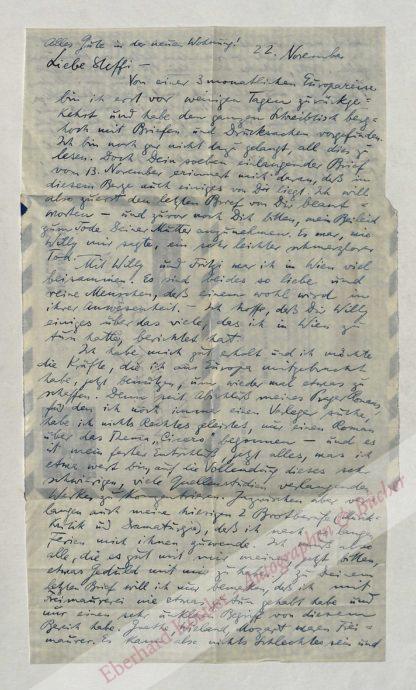 Alles Gute in der neuen Wohnung!
22. November
Liebe Steffi –
Von einer 3 monatlichen Europareise
bin ich erst vor wenigen Tagen zurückge-
kehrt und habe den ganzen Schreibtisch berg-
hoch mit Briefen und Drucksachen vorgefunden.
Ich bin noch gar nicht dazu gelangt, all dies zu
lesen. Doch Dein soeben einlangender Brief
vom 13. November erinnert mich daran, daß in
diesem Berge auch einiges von Dir liegt. Ich will
also zuerst den letzten Brief von Dir beant-
worten – und zuvor noch Dich bitten, mein Beileid
zum Tode Deiner Mutter anzunehmen. Es war, wie
Willy mir sagte, ein sehr leichter schmerzloser
Tod.
Mit Willy und Fritzi war ich in Wien viel
beisammen. Es sind beides so liebe und
reine Menschen, daß einem wohl wird in
ihrer Anwesenheit. – Ich hoffe, daß Dir Willy
einiges über das viele, das ich in Wien zu
tun hatte, berichtet hat.
Ich habe mich gut erholt und ich möchte
die Kräfte, die ich aus Europa mitgebracht
habe, jetzt benützen, um wieder mal etwas zu
schaffen. Denn seit Abschluß meines Romans,
für den ich noch immer einen Verleger suche,
habe ich nichts Rechtes geleistet, nur einen Roman
über das Thema "Cicero" begonnen – und es
ist mein fester Entschluß, jetzt alles, was ich
etwa wert bin, auf die Vollendung dieses sehr
schwierigen, viele Quellenstudien verlangenden
Werkes zu konzentrieren. Inzwischen aber ver-
langen auch meine hiesigen Brotberufe (Musik-
kritik und Dramaturgie), daß ich nach so langen
Ferien mich ihnen zuwende. Ich muß also
alle, die es gut mit mir meinen, jetzt bitten,
etwas Geduld mit mir zu haben. Zu Deinem
letzten Brief will ich nur bemerken, daß ich mit
Freimaurerei nie etwas zu tun gehabt habe und
nur einen sehr unklaren Begriff von diesem
Bereich habe. Goethe, Wieland, Mozart waren Frei-
maurer. Es kann also nichts Schlechtes sein und
Eberhard Köstler Autographen & Bücher